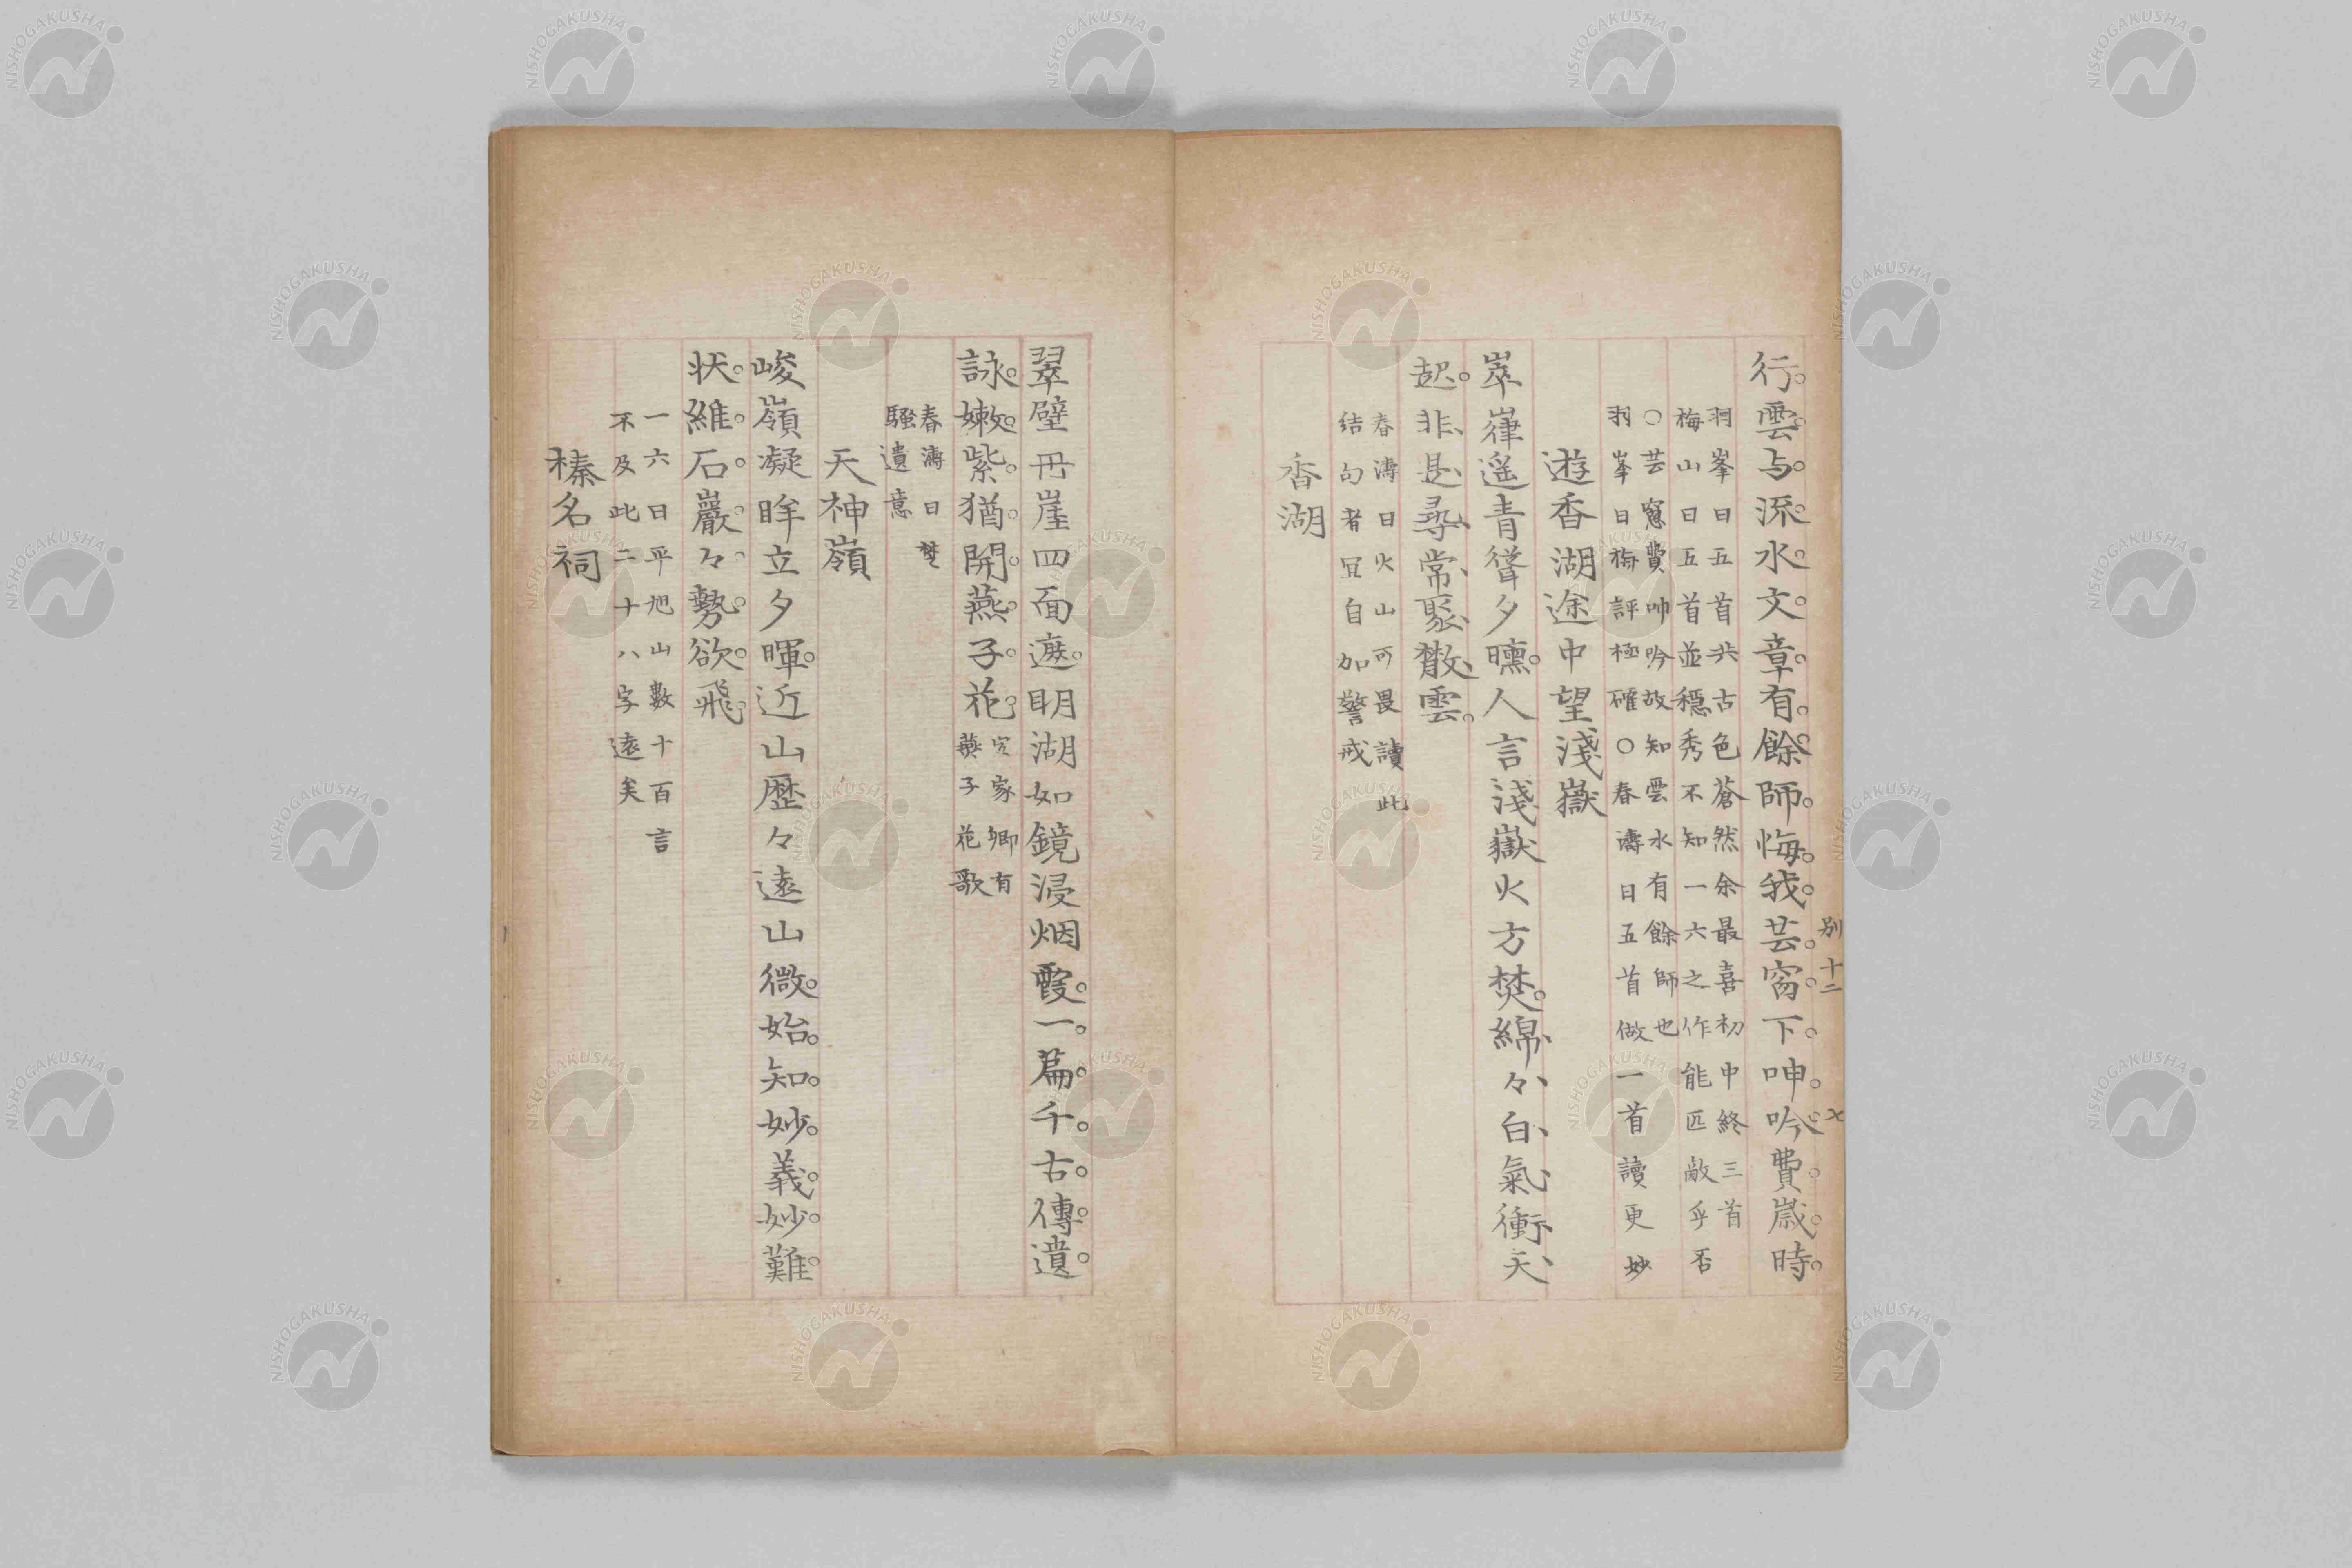 行雲与流水文章有餘師悔我芸窗下呻吟費歳時
羽峯曰五首共古色蒼然余最喜初中終三首
梅山曰五首並穩秀不知一六之作能匹敵乎否
○芸窓費呻吟故知雲水有餘師也
羽峯曰梅評極確○春濤曰五首做一首讀更妙
遊香湖途中望淺嶽
崒嵂遥青聳夕曛人言淺嶽火方焚綿々白氣衝天
起非是尋常聚散雲
春濤曰火山可畏讀此
结句者冝自加警戒
香湖
別十二
翠壁丹崖四面遮明湖如鏡浸烟霞一篇千古傳遺
詠嫩紫猶開燕子花
定家卿有
燕子花歌
春濤曰楚
騷遺意
天神嶺
峻嶺凝眸立夕暉近山歴々遠山微始知妙義妙難
状維石巖々勢欲飛
一六曰平旭山數十百言
不及此二十八字遠矣
榛名祠
NISHOGAKUSHA